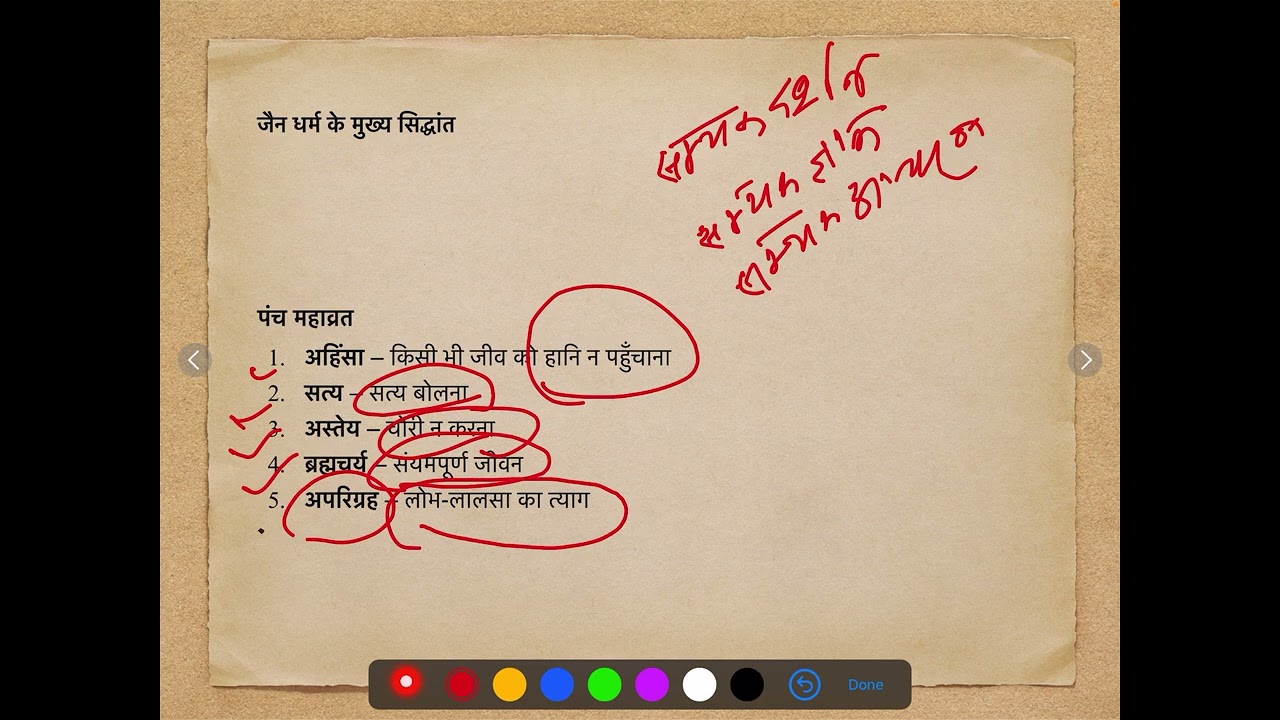 जैन धर्म के मुख्य सिद्धांत
सम्यक दर्शन
सम्यक ज्ञान
सम्यक
पंच महाव्रत
1. अहिंसा – किसी भी जीव को हानि न पहुँचाना
2. सत्य – सत्य बोलना
3. अस्तेय – चोरी न करना
4. ब्रह्मचर्य – संयमपूर्ण जीवन
5. अपरिग्रह – लोभ-लालसा का त्याग
Done